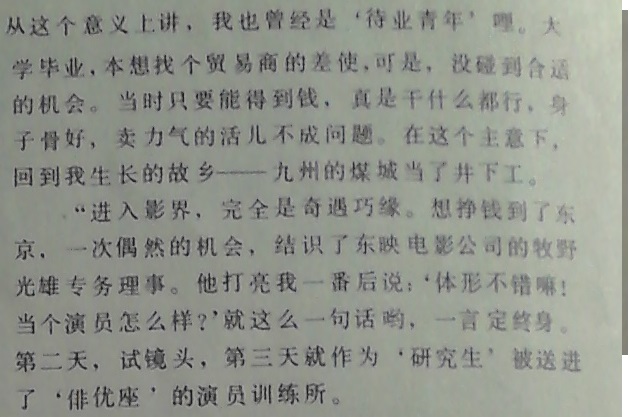 从这个意义上讲，我也曾经是‘待业青年’哩。大
学毕业，本想找个贸易商的差使，可是，没碰到合适
的机会。当时只要能得到钱，真是干什么都行，身
子骨好，卖力气的活儿不成问题。在这个主意下，
回到我生长的故乡——九州的煤城当了井下工。
“进入影界，完全是奇遇巧缘。想挣钱到了东
京，一次偶然的机会，结识了东映电影公司的牧野
光雄专务理事。他打亮我一番后说：‘体形不错嘛！
当个演员怎么样？’就这么一句话哟，一言定终身。
第二天，试镜头，第三天就作为‘研究生’被送进
了‘俳优座’的演员训练所。